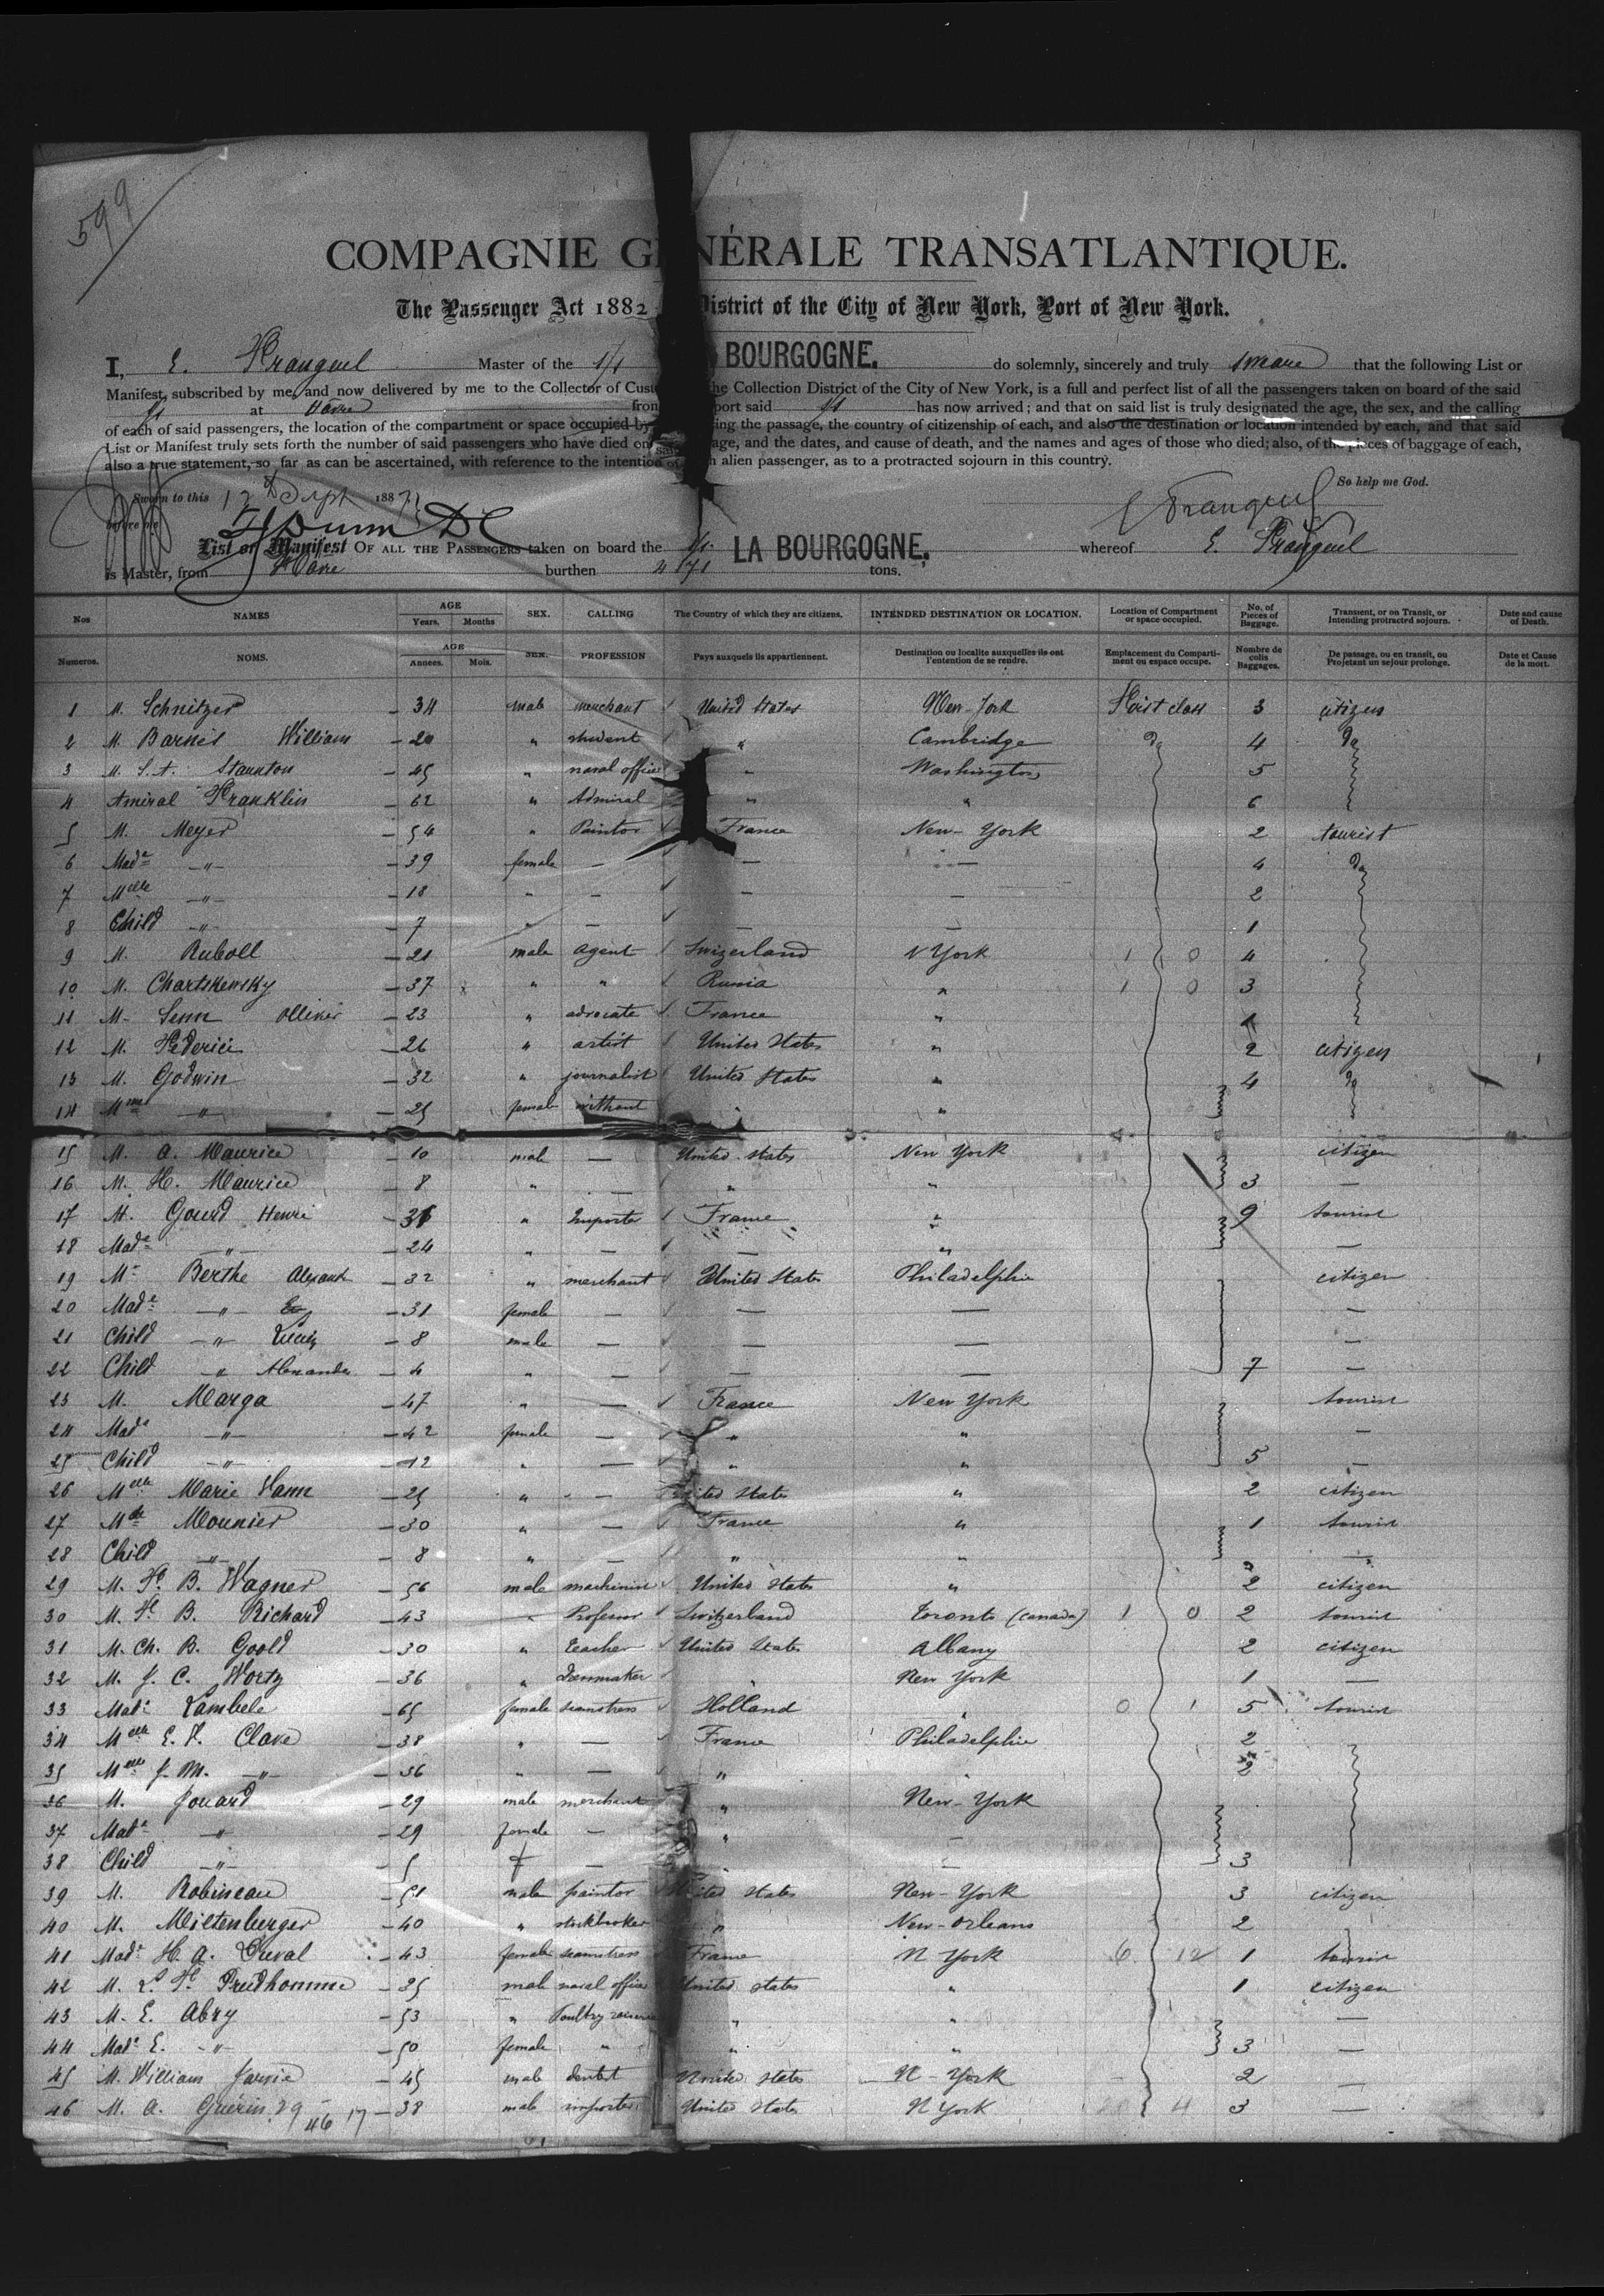 599
COMPAGNIE GÉNÉRALE TRANSATLANTIQUE.
The Passenger Act 1882 District of the City of New York, Port of New York.
I, E. Frangeul Master of the S/S LA BOURGOGNE. do solemnly, sincerely and truly swear that the following List or
Manifest, subscribed by me, and now delivered by me to the Collector of Customs of the Collection District of the City of New York, is a full and perfect list of all the passengers taken on board of the said
at Havre from port said has now arrived; and that on said list is truly designated the age, the sex, and the calling
of each of said passengers, the location of the compartment or space occupied by during the passage, the country of citizenship of each, and also the destination or location intended by each, and that said
List or Manifest truly sets forth the number of said passengers who have died on said voyage, and the dates, and cause of death, and the names and ages of those who died; also, of the pieces of baggage of each,
also a true statement, so far as can be ascertained, with reference to the intention of each alien passenger, as to a protracted sojourn in this country.
So help me God.
Sworn to this 12 Sept 188
before me
Frangeul
List or Manifest OF ALL THE PASSENGERS taken on board the S/S. LA BOURGOGNE. whereof E. Frangeul
is Master, from Havre burthen tons.
Nos NAMES AGE Years. Months SEX. CALLING The Country of which they are citizens. INTENDED DESTINATION OR LOCATION. Location of Compartment or space occupied. No. of Pieces of Baggage. Transient, or on Transit, or Intending protracted sojourn. Date and cause of Death.
Numeros. NOMS. AGE Annees. Mois. SEX. PROFESSION Pays auxquels ils appartiennent. Destination ou localite auxquelles ils ont l'entention de se rendre. Emplacement du Comparti-ment ou espace occupe. Nombre de colis Baggages. De passage, ou en transit, ou Projetant un sejour prolonge. Date et Cause de la mort.
1 M. Schnitzer 34 male merchant United States New-York First class 3 citizen
2 M. Barnes William 20 " student " Cambridge do 4 do
3 M. S. A. Staunton 45 " naval office " Washington 5
4 Amiral Franklin 62 " Admiral " " 6
5 M. Meyer 54 " Paintor France New-York 2 tourist
6 Made " 39 female — — — 4 do
7 Melle " 18 " - — — 2
8 Child " 7 " — — — 1
9 M. Ruboll 21 male agent Swizerland N York 1 0 4
10 M. Chartskewsky 37 " " Russia " 1 0 3
11 M. Senn Ollivier 23 " advocate France "
12 M. Federici 26 " artist United States " 2 citizen
13 M. Godwin 32 " journalist United States " 4 do
14 Mme " 25 female without " "
15 M. A. Maurice 10 male — United States New York citizen
16 M. H. Maurice 8 " — " " 3 —
17 M. Gourd Henri " Importer France " 9 tourist
18 Made " 24 " — — " —
19 Mr Berthe Alexand 32 " merchant United States Philadelphie citizen
20 Made " 31 female — — — —
21 Child " 8 male — — — —
22 Child " Alexander 4 " — — — 7 —
23 M. Marga 47 " — France New York tourist
24 Made " 42 female — " " —
25 Child " 12 " — " " 5 —
26 Melle Marie Hann 25 " — United States " 2 citizen
27 Mde Mounier 30 " — France " 1 tourist
28 Child " 8 " — " " —
29 M. F. B. Wagner 56 male machinist United States " 2 citizen
30 M. F. B. Richard 43 " Professor Switzerland Toronto (Canada) 1 0 2 tourist
31 M. Ch. B. Goold 30 " teacher United States Albany 2 citizen
32 M. J. C. Worty 36 " New York 1 —
33 Made Lambele 65 female seamstress Holland 0 1 5 tourist
34 Melle E. F. Clave 38 " — France Philadelphie 2
35 Melle J. M. " 36 " — " 2
36 M. Jouard 29 male merchant " New-York
37 Made " 29 female — " —
38 Child " 5 f — " — 3
39 M. Robineau 51 male paintor United States New-York 3 citizen
40 M. Miltenberger 40 " stockbroker " New-Orleans 2
41 Made H. A. Duval 43 female seamstress France N York 6 12 1 tourist
42 M. L. F. Prudhomme 35 male naval office United States " 1 citizen
43 M. E. Abry 53 " Poultry " " —
44 Made E. " 50 female " " " 3 —
45 M. William Jarvie 45 male dentist United States N-York 2 —
46 M. A. Guerin 38 male importer United States N York 4 3 —
29 46 17